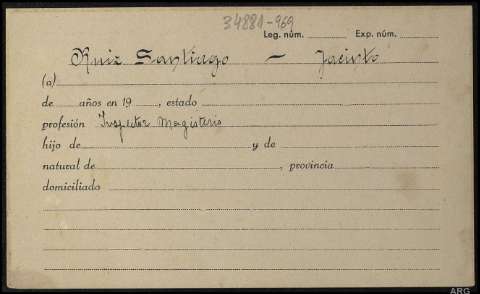 34881-969
Leg. núm. Exp. núm.
Ruiz Santiago - Jacinto
(a)
de años en 19 , estado
profesión Inspector Magisterio
hijo de y de
natural de , provincia
domiciliado
ARG